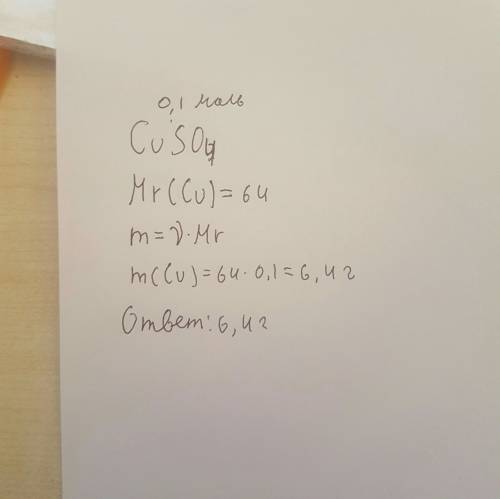 0,1 моль
CuSO4
Mr(Cu)=64
m=ν·Mr
m(Cu)=64·0,1=6,4 г
Ответ: 6,4 г